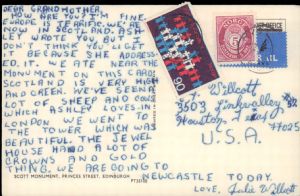 DEAR GRANDMOTHER,
HOW ARE YOU? I'M FINE.
EUROPE IS TERRIFIC. WE'RE
NOW IN SCOTLAND. ASH
WROTE YOU, BUT I
DON'T THINK YOU'LL GET
IT BECAUSE SHE ADDRESS-
ED IT. WE ATE NEAR THE
MONUMENT ON THIS CARD.
SCOTLAND IS VERY HIGH
AND GREEN. WE'VE SEEN A
LOT OF SHEEP AND COWS
WHICH ASHLEY LOVES. IN
LONDON WE WENT TO
THE TOWER WHICH WAS
BEAUTIFUL. THE JEWEL
HOUSE HAD A LOT OF
CROWNS AND GOLD
THING. WE ARE GOING TO
NEWCASTLE TODAY.
LOVE,
SCOTT MONUMENT, PRINCES STREET, EDINBURGH
NORGE
90
Willcott
3503
Houston
77025
U.S.A.